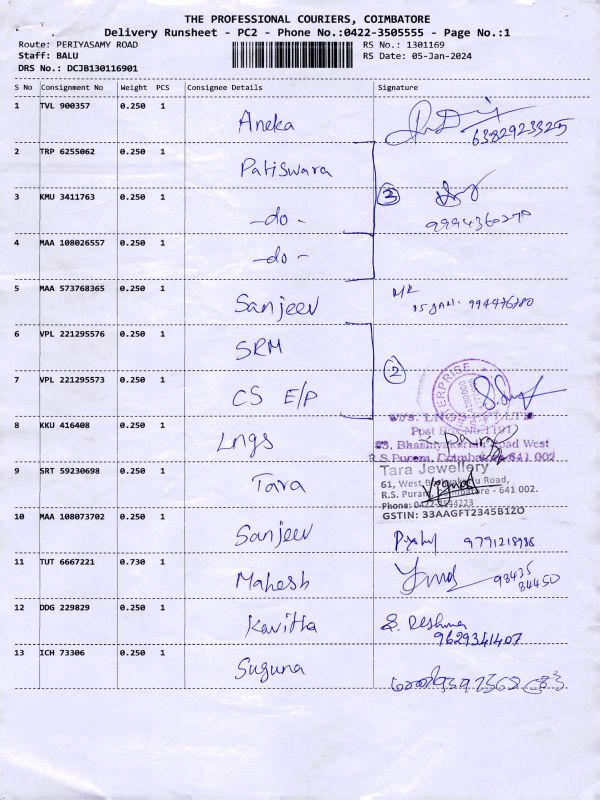 THE PROFESSIONAL COURIERS, COIMBATORE
Delivery Runsheet - PC2 - Phone No.:0422-3505555 - Page No.:1
Route: PERIYASAMY ROAD RS No.: 1301169
Staff: BALU RS Date: 05-Jan-2024
DRS No.: DCJB130116901
S No Consignment No Weight PCS Consignee Details Signature
1 TVL 900357 0.250 1 Aneka 6382923325
2 TRP 6255062 0.250 1 Patiswara
3 KMU 3411763 0.250 1 -do- 3 9994360270
4 MAA 108026557 0.250 1 -do-
5 MAA 573768365 0.250 1 Sanjeev
6 VPL 221295576 0.250 1 SRM
7 VPL 221295573 0.250 1 CS E/P 2
8 KKU 416408 0.250 1 Lngs
Road West
R.S. Puram, Coimbatore-641 002
9 SRT 59230698 0.250 1 Tara
Tara Jewellery
61, West Road,
R.S. Puram, Coimbatore - 641 002.
Phone:
GSTIN: 33AAGFT2345B1ZO
10 MAA 108073702 0.250 1 Sanjeev 9791218988
11 TUT 6667221 0.730 1 Mahesh 98435
84450
12 DDG 229829 0.250 1 Kavitha Reshma
9629341407
13 ICH 73306 0.250 1 Suguna